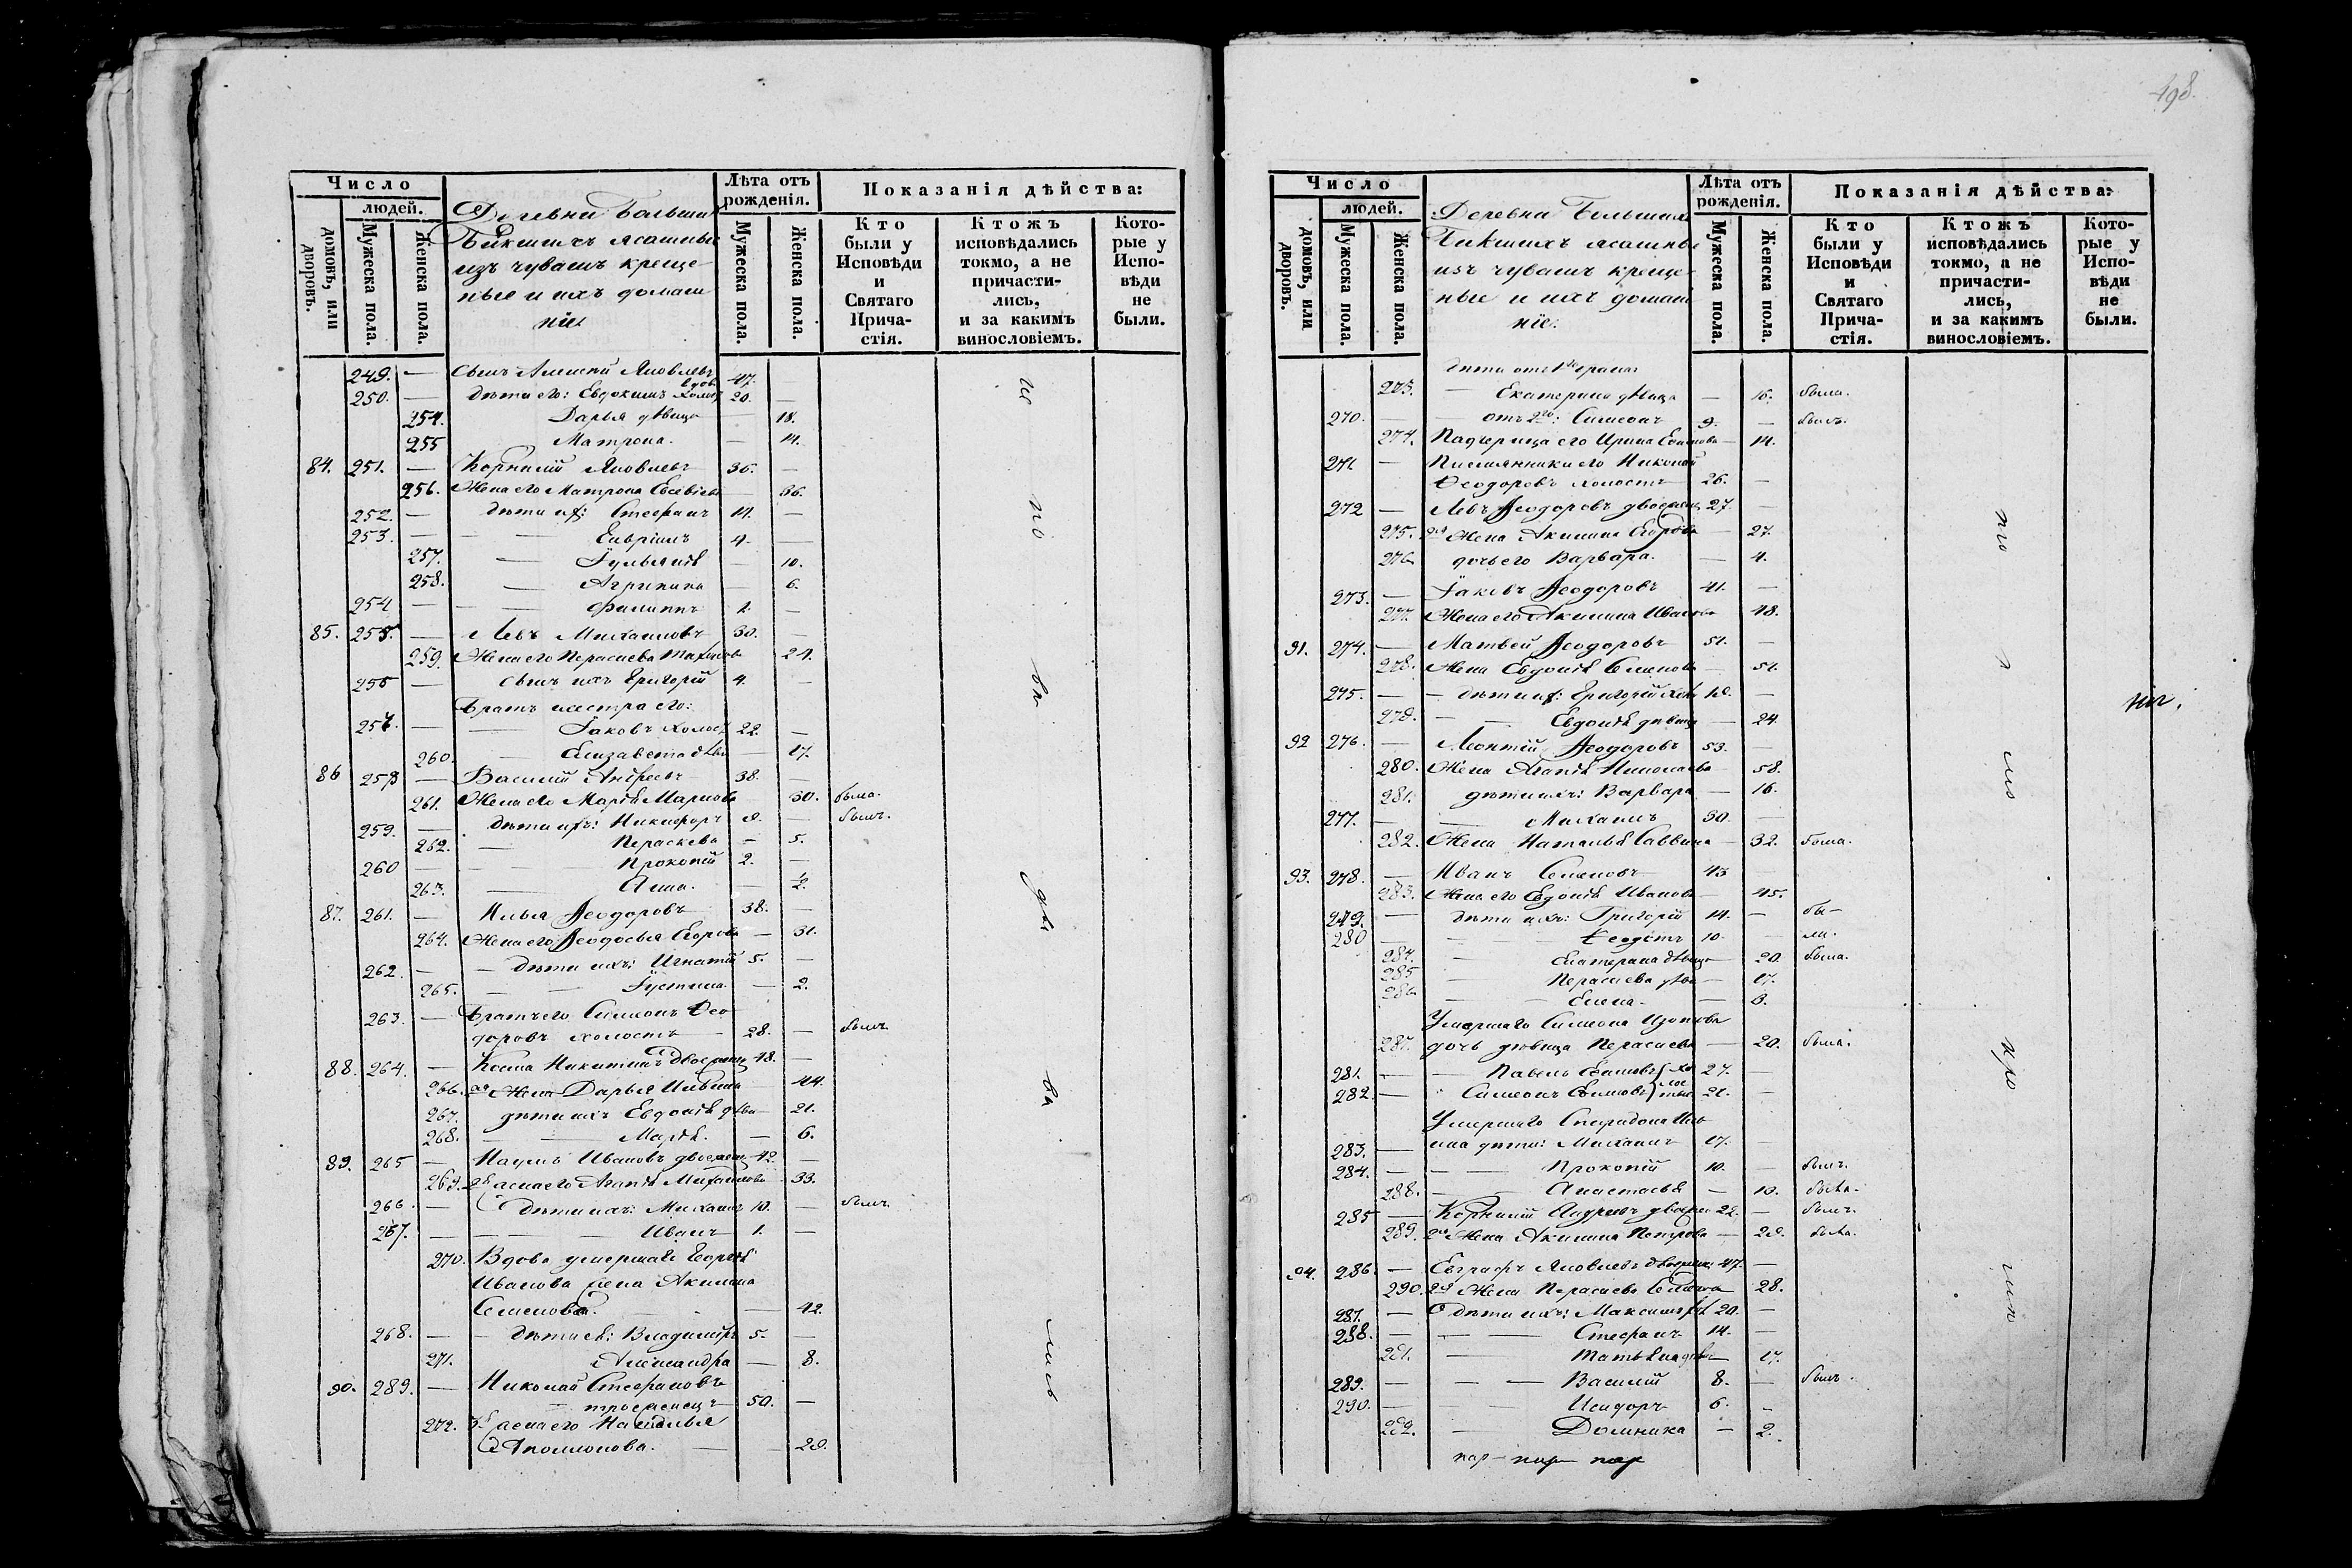 498.
Число
людей.
домовъ, или дворовъ.
Мужеска пола.
Женска пола.
Деревни Большихъ
Бикшихъ ясашные
изъ чувашъ креще-
ные и ихъ домаш
ніе:
Лѣта отъ
рожденія.
Мужеска пола.
Женска пола.
Показанія дѣйства:
Кто
были у
Исповѣди
и
Святаго
Прича-
стія.
Ктожъ
исповѣдались
токмо, а не
причасти-
лись,
и за какимъ
винословіемъ.
Кото-
рые у
Испо-
вѣди
не
были.
249. — сынъ Алексѣй Яковлевъ вдов. 47.
250. — дѣти его: Евдокимъ холост 20. —
254. Дарья дѣвица — 18.
255 Матрона. — 14.
84. 251. — Корнилій Яковлевъ 36. —
256. Жена его Матрона Евсевіева — 36.
252. — дѣти их: Стефанъ 14. —
253. — — Гаврiилъ 4. —
257. — Іуліанія — 10.
258. — Агрипина — 6.
254 — — Филиппъ 1. —
85. 255. — Левъ Михаиловъ 30. —
259. Жена его Параскева 24.
256 — сынъ ихъ Григорій 4. —
Братъ и сестра его:
257. — — Іаковъ холост 22. —
260. — Елизавета дѣви — 17.
86 258 — Василій Андреевъ 38. —
261. Жена его Марѳа Маркова 30. была.
259. — дѣти ихъ: Никифоръ 9. — былъ.
262. — Пераскева — 5.
260 — — Прокопій 2. —
263. — Анна. — ½.
87. 261. — Илья Ѳеодоровъ 38. —
264. Жена его Ѳеодосья Егорова — 31.
262. — — дѣти ихъ: Игнатій 5. —
265. — — Іустина. — 2.
263. — Братъ его Симеонъ Ѳео-
доровъ холостъ 28. — былъ.
88. 264. — Косма Никитинъ двоежен 48. —
266. 2я Жена Дарья Ильина 44.
267. дѣти ихъ Евдокія дѣви — 21.
268. — — Марѳа. — 6.
89. 265 — Наумъ Ивановъ двоежен 42. —
269. 2я жена его Агапія Михаилова 33.
266. — дѣти ихъ: Михаилъ 10. — былъ.
267. — — — Иванъ 1. —
270. Вдова умершаго Георгія
Иванова жена Акилина
Семенова. — 42.
268. — — дѣти ея: Владимиръ 5. —
271. Александра — 8.
90. 289. — Николай Стефановъ
троеженецъ 50. —
272. 3я жена его Наталья
Аполлонова. — 29.
и
по
вѣ
да
ва
лись
Число
людей.
домовъ, или дворовъ.
Мужеска пола.
Женска пола.
Деревни Большихъ
Бикшихъ ясашные
изъ чувашъ креще-
ные и ихъ домаш
ніе:
Лѣта отъ
рожденія.
Мужеска пола.
Женска пола.
Показанія дѣйства:
Кто
были у
Исповѣди
и
Святаго
Прича-
стія.
Ктожъ
исповѣдались
токмо, а не
причасти-
лись,
и за какимъ
винословіемъ.
Кото-
рые у
Испо-
вѣди
не
были.
дѣти отъ 1го брака:
273. — Екатерина дѣвица — 16. была.
270. — отъ 2го: Симеонъ 9. — былъ.
274. Падчерица его Ирина — 14.
271 — Племянники его Николай
Ѳеодоровъ холостъ 26. —
272 — Левъ Ѳеодоровъ двоежен 27. —
275. 2я Жена Акилина Егорова — 27.
276 дочь его Варвара. — 4.
273. — Іаковъ Ѳеодоровъ 41. —
277. Жена его Акилина Иванова 48.
91. 274. — Матвей Ѳеодоровъ 51. —
278. Жена Евдокія Семенова — 51.
275. — — дѣти их: Григорій хол 19. —
279. — — Евдокія дѣвица — 24.
92 276. — Леонтій Ѳеодоровъ 53. —
280. Жена Агапія Николаева 58.
281. дѣти ихъ: Варвара — 16.
277. — — Михаилъ 30. —
282. Жена Наталья Саввина — 32. была.
93. 278. — Иванъ Семеновъ 43
283. Жена его Евдокія Иванова — 45.
279. — дѣти ихъ: Григорій 14. — бы-
280 — Ѳеодотъ 10. ли.
284. — Екатерина дѣвица — 20. была.
285 — Пераскева дѣви — 17.
286 — — Елена. — 3.
Умершаго Симеона
287. дочь дѣвица Пераскева — 20. была.
281. — — Павелъ хо 27. —
282. — Симеонъ лос ты 21. —
Умершаго Спиридона Иль
283. — ина дѣти: Михаилъ 17. —
284. — — — Прокопій 10. — былъ.
288. — — Анастасья — 13. была.
285 — Корнилій Андреевъ двоеже 22. — былъ.
289. 2я Жена Акилина Петрова — 29. была.
94. 286. — Евграфъ Яковлевъ двоежен 47. —
290. 2я Жена Пераскева 28.
287. — дѣти ихъ: Максимъ 20. —
288. — — — Стефанъ 14. —
291. — Татьяна дѣви — 17.
289. — — — Василій 8. — былъ.
290. — — Исидоръ 6. —
292. — Домника — 2.